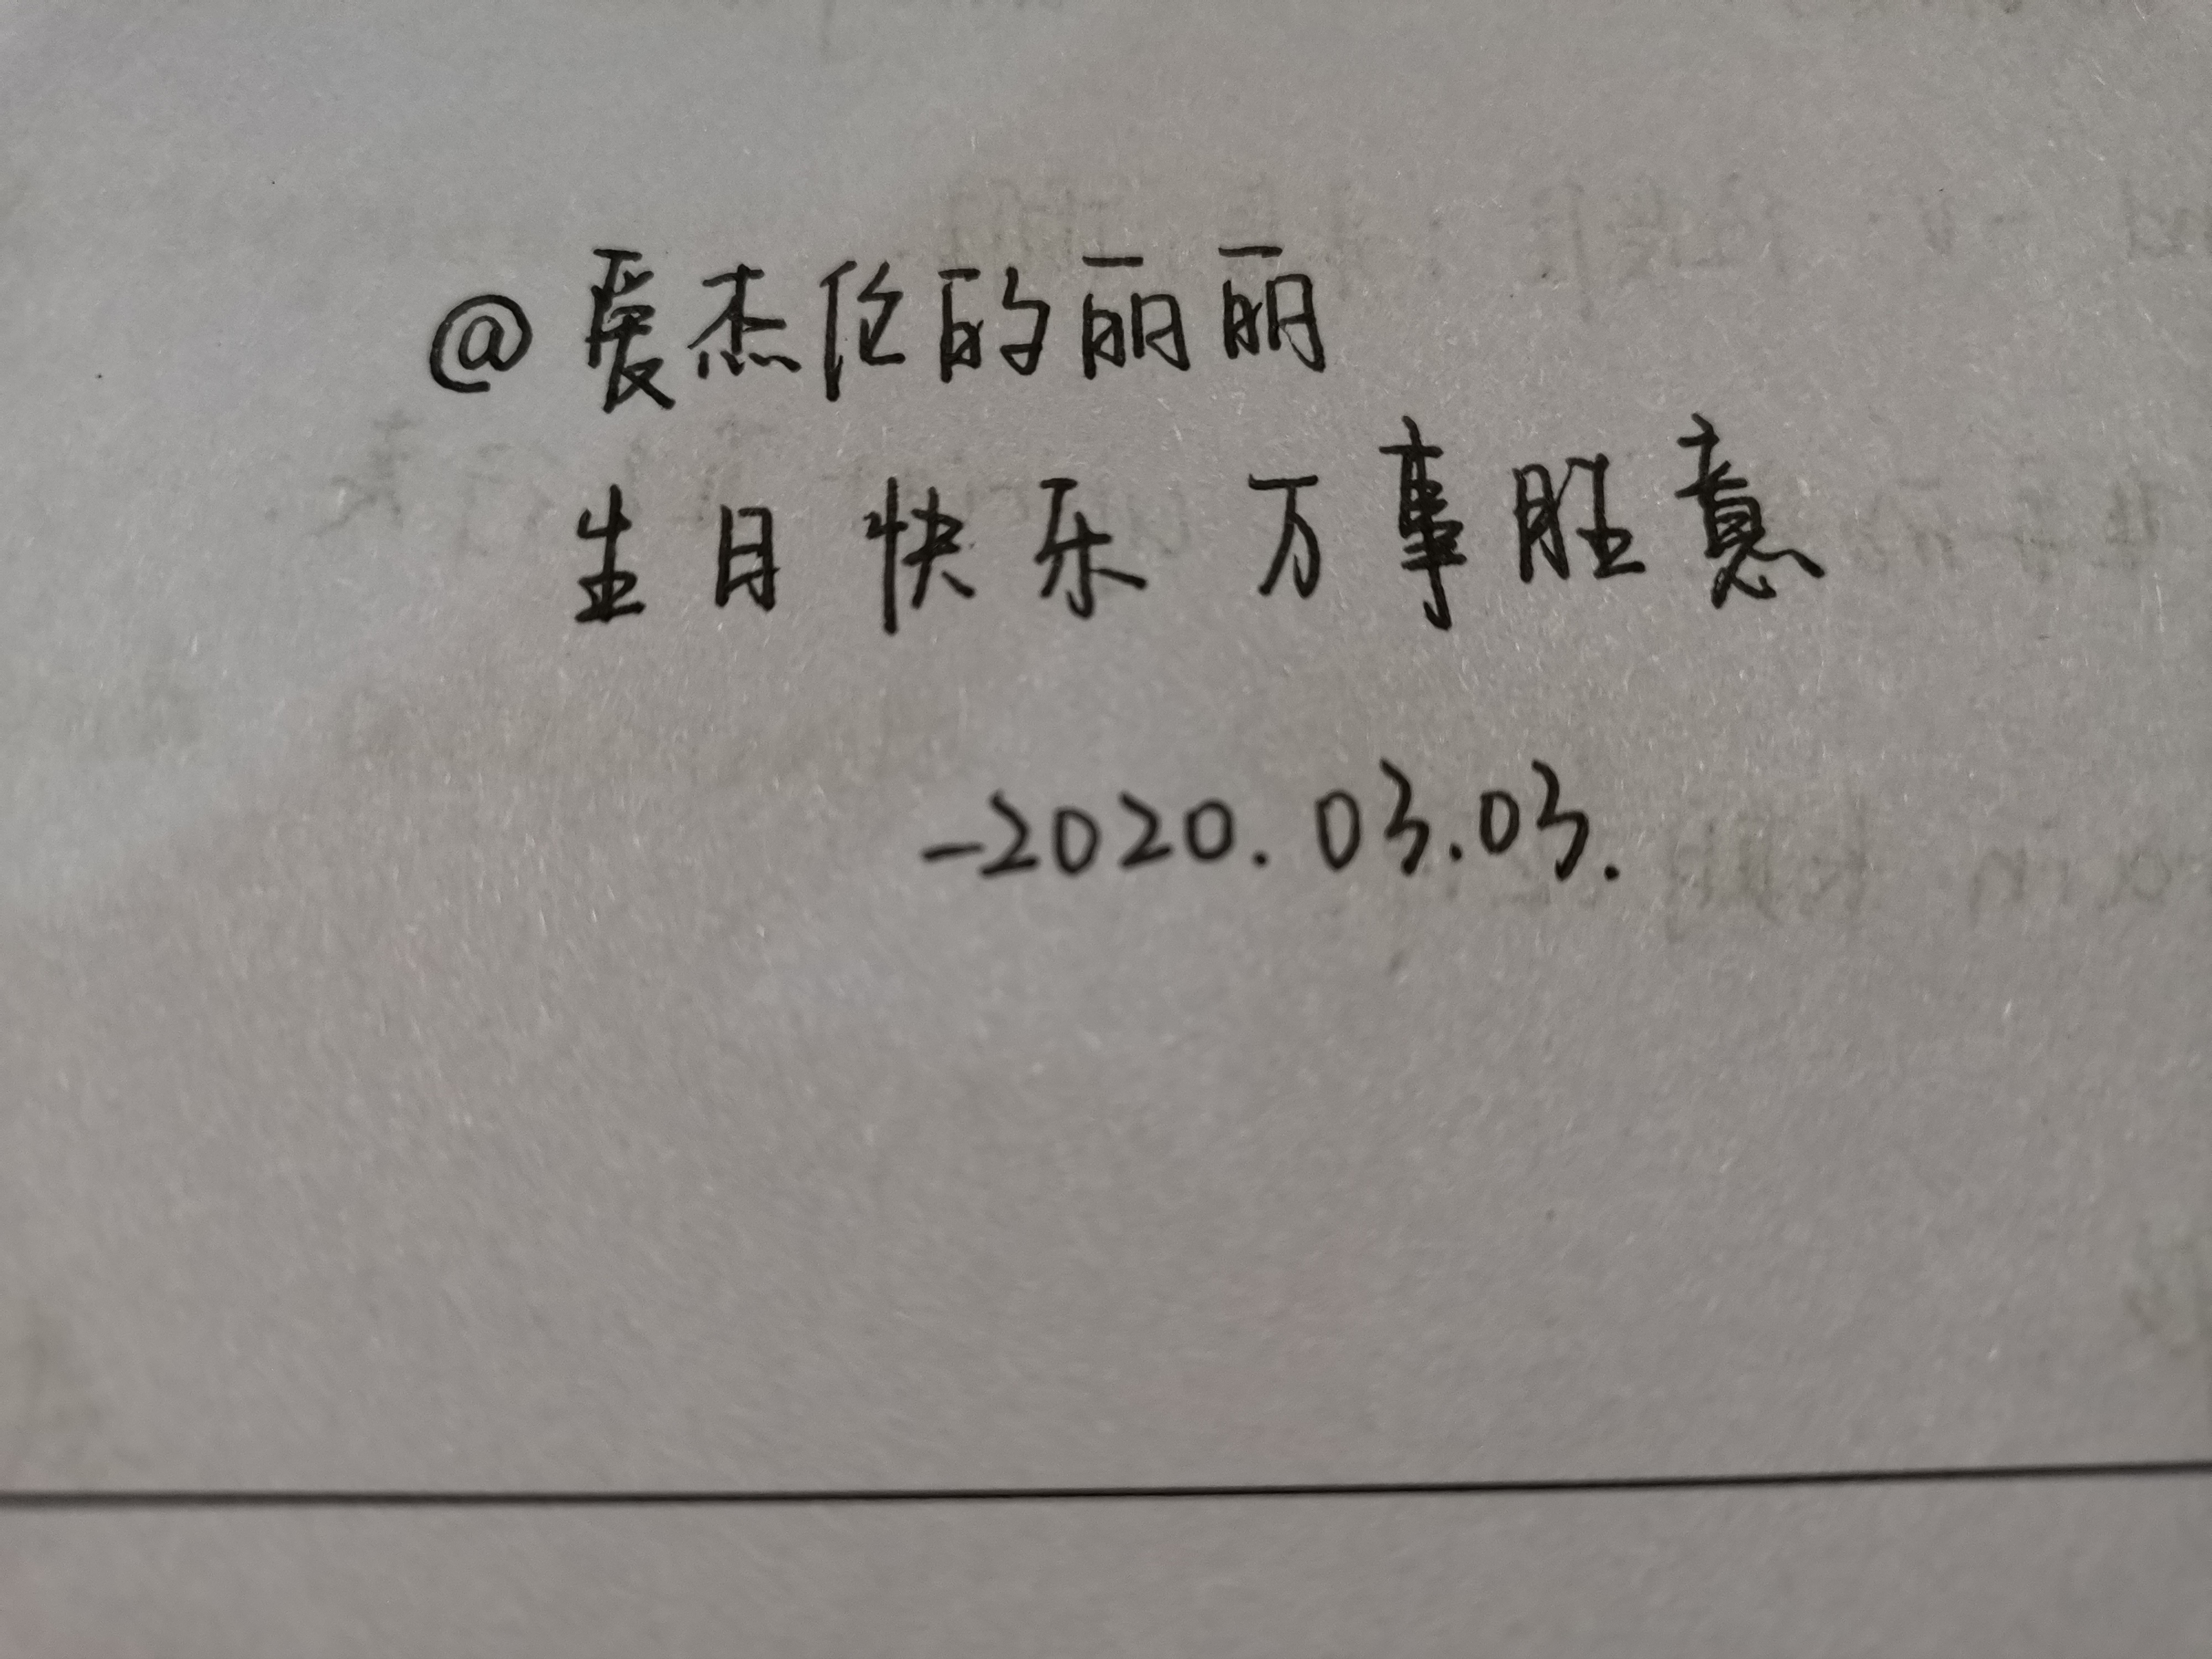 @爱杰伦的丽丽
生日快乐 万事胜意
-2020.03.03.